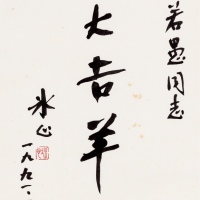 若愚同志
大吉羊
冰心
一九九一、